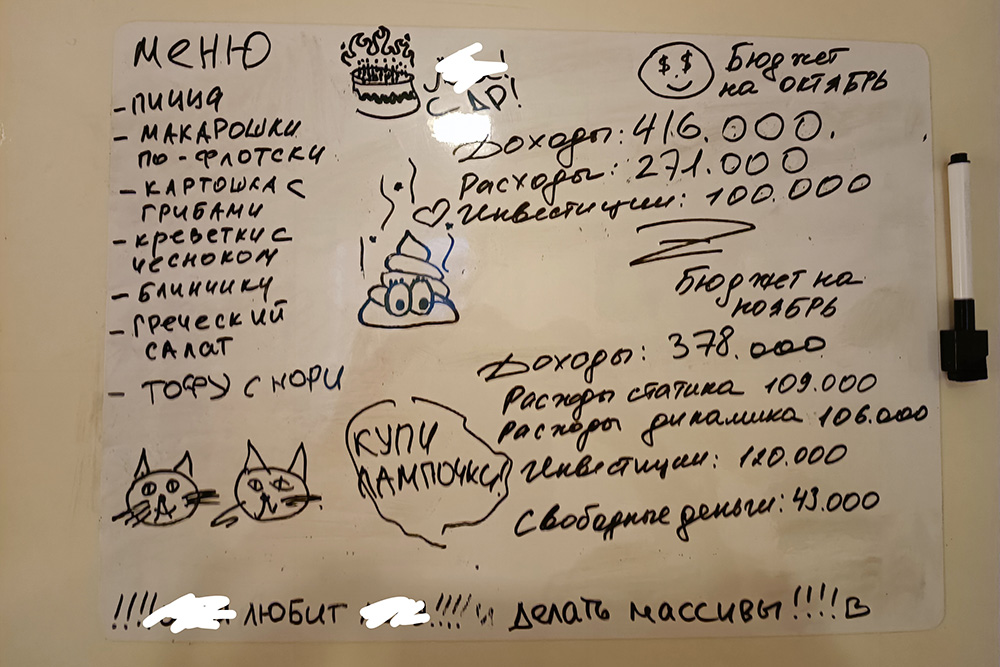 МЕНЮ
- ПИЦЦА
- МАКАРОШКИ
ПО-ФЛОТСКИ
- КАРТОШКА С
ГРИБАМИ
- КРЕВЕТКИ С
ЧЕСНОКОМ
- БЛИНЧИКИ
- ГРЕЧЕСКИЙ
САЛАТ
- ТОФУ С НОРИ
С ДР!
$ $
Бюджет
на ОКТЯБРЬ
Доходы: 416.000.
Расходы: 271.000
Инвестиции: 100.000
Бюджет на
НОЯБРЬ
Доходы: 378.000
Расходы статика 109.000
Расходы динамика 106.000
Инвестиции: 120.000
Свободные деньги: 43.000
КУПИ
ЛАМПОЧКИ
!!!! ЛЮБИТ !!!! и ДЕЛАТЬ МАССИВЫ!!!!